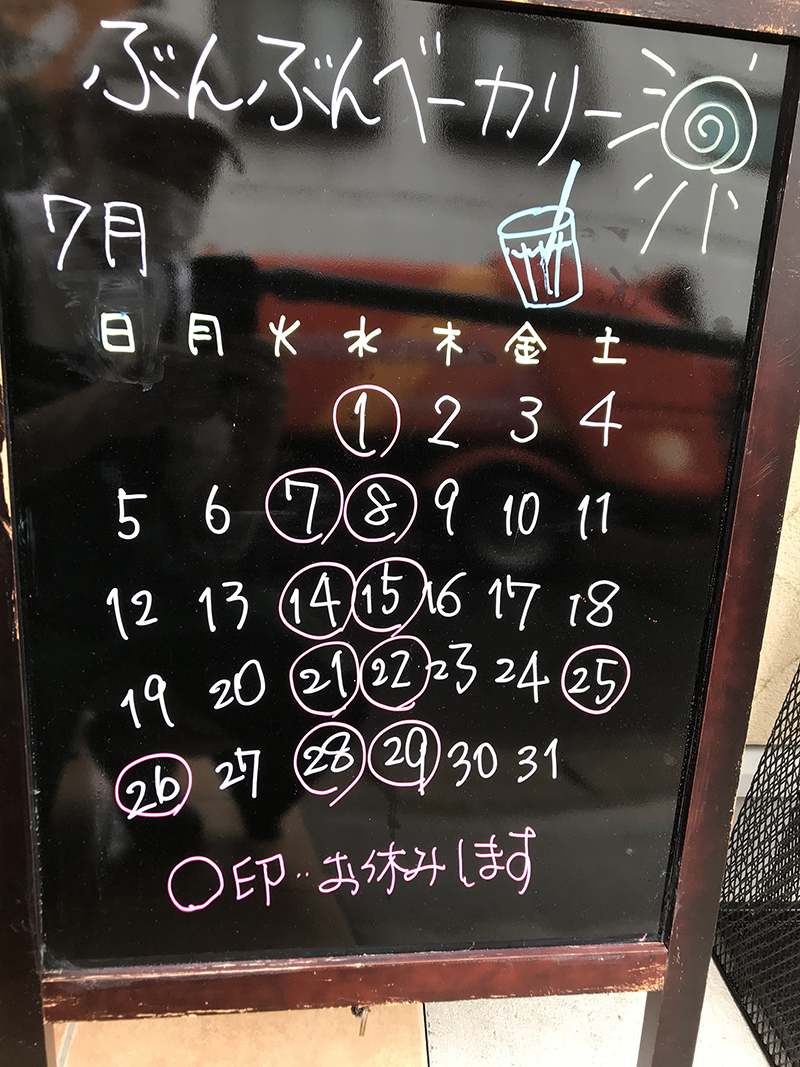 ぶんぶんベーカリー
7月
日 月 火 水 木 金 土
1 2 3 4
5 6 7 8 9 10 11
12 13 14 15 16 17 18
19 20 21 22 23 24 25
26 27 28 29 30 31
○印‥お休みします